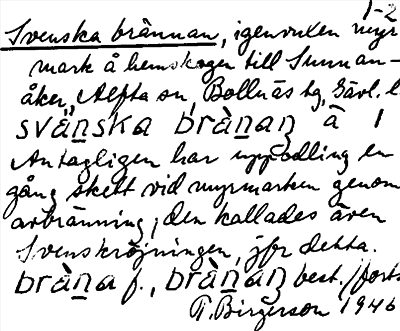 1-2
Svenska brännan, igenvuxen myr
mark å hemskogen till Sunnan-
åker, Alfta sn, Bollnäs tg, Gävl. l.
svänska brànaṉ à 1
Antagligen har uppodling en
gång skett vid myrmarken genom
avbränning; den kallades även
Svenskröjningen, jfr detta.
bràṉa f., bràṉaṉ best. /forts
T. Birgerson 1946